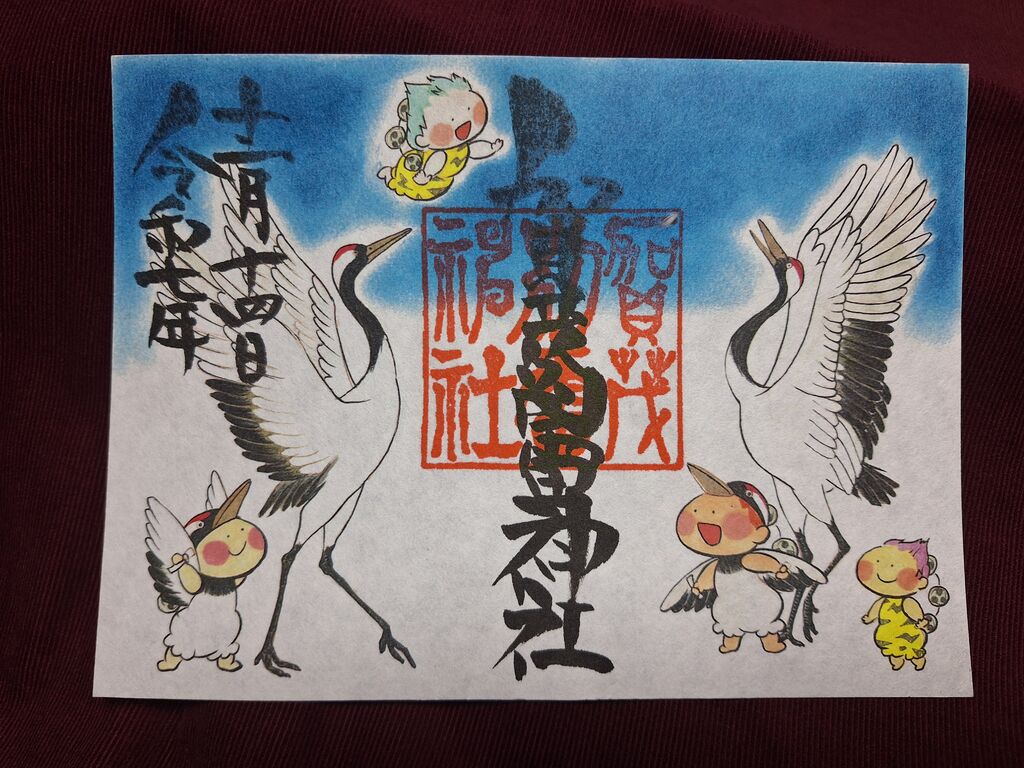 賀茂別雷神社
賀茂
別雷
神社
令和七年
十一月十四日